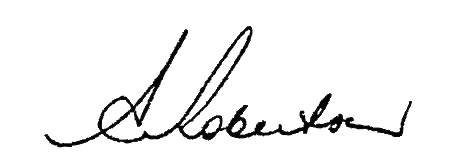 A Robertson